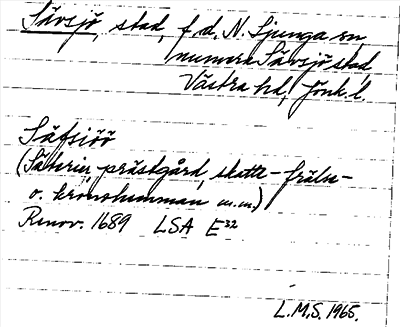 Sävsjö, stad, f.d. N. Ljunga sn,
numera Sävsjö stad,
Västra hd, Jönk. l.
Säfsiöö
(Säterier, prästgård, skatte-frälse-
o. kronohemman m.m.)
Renov. 1689 LSA E³²
L.M.S. 1965.